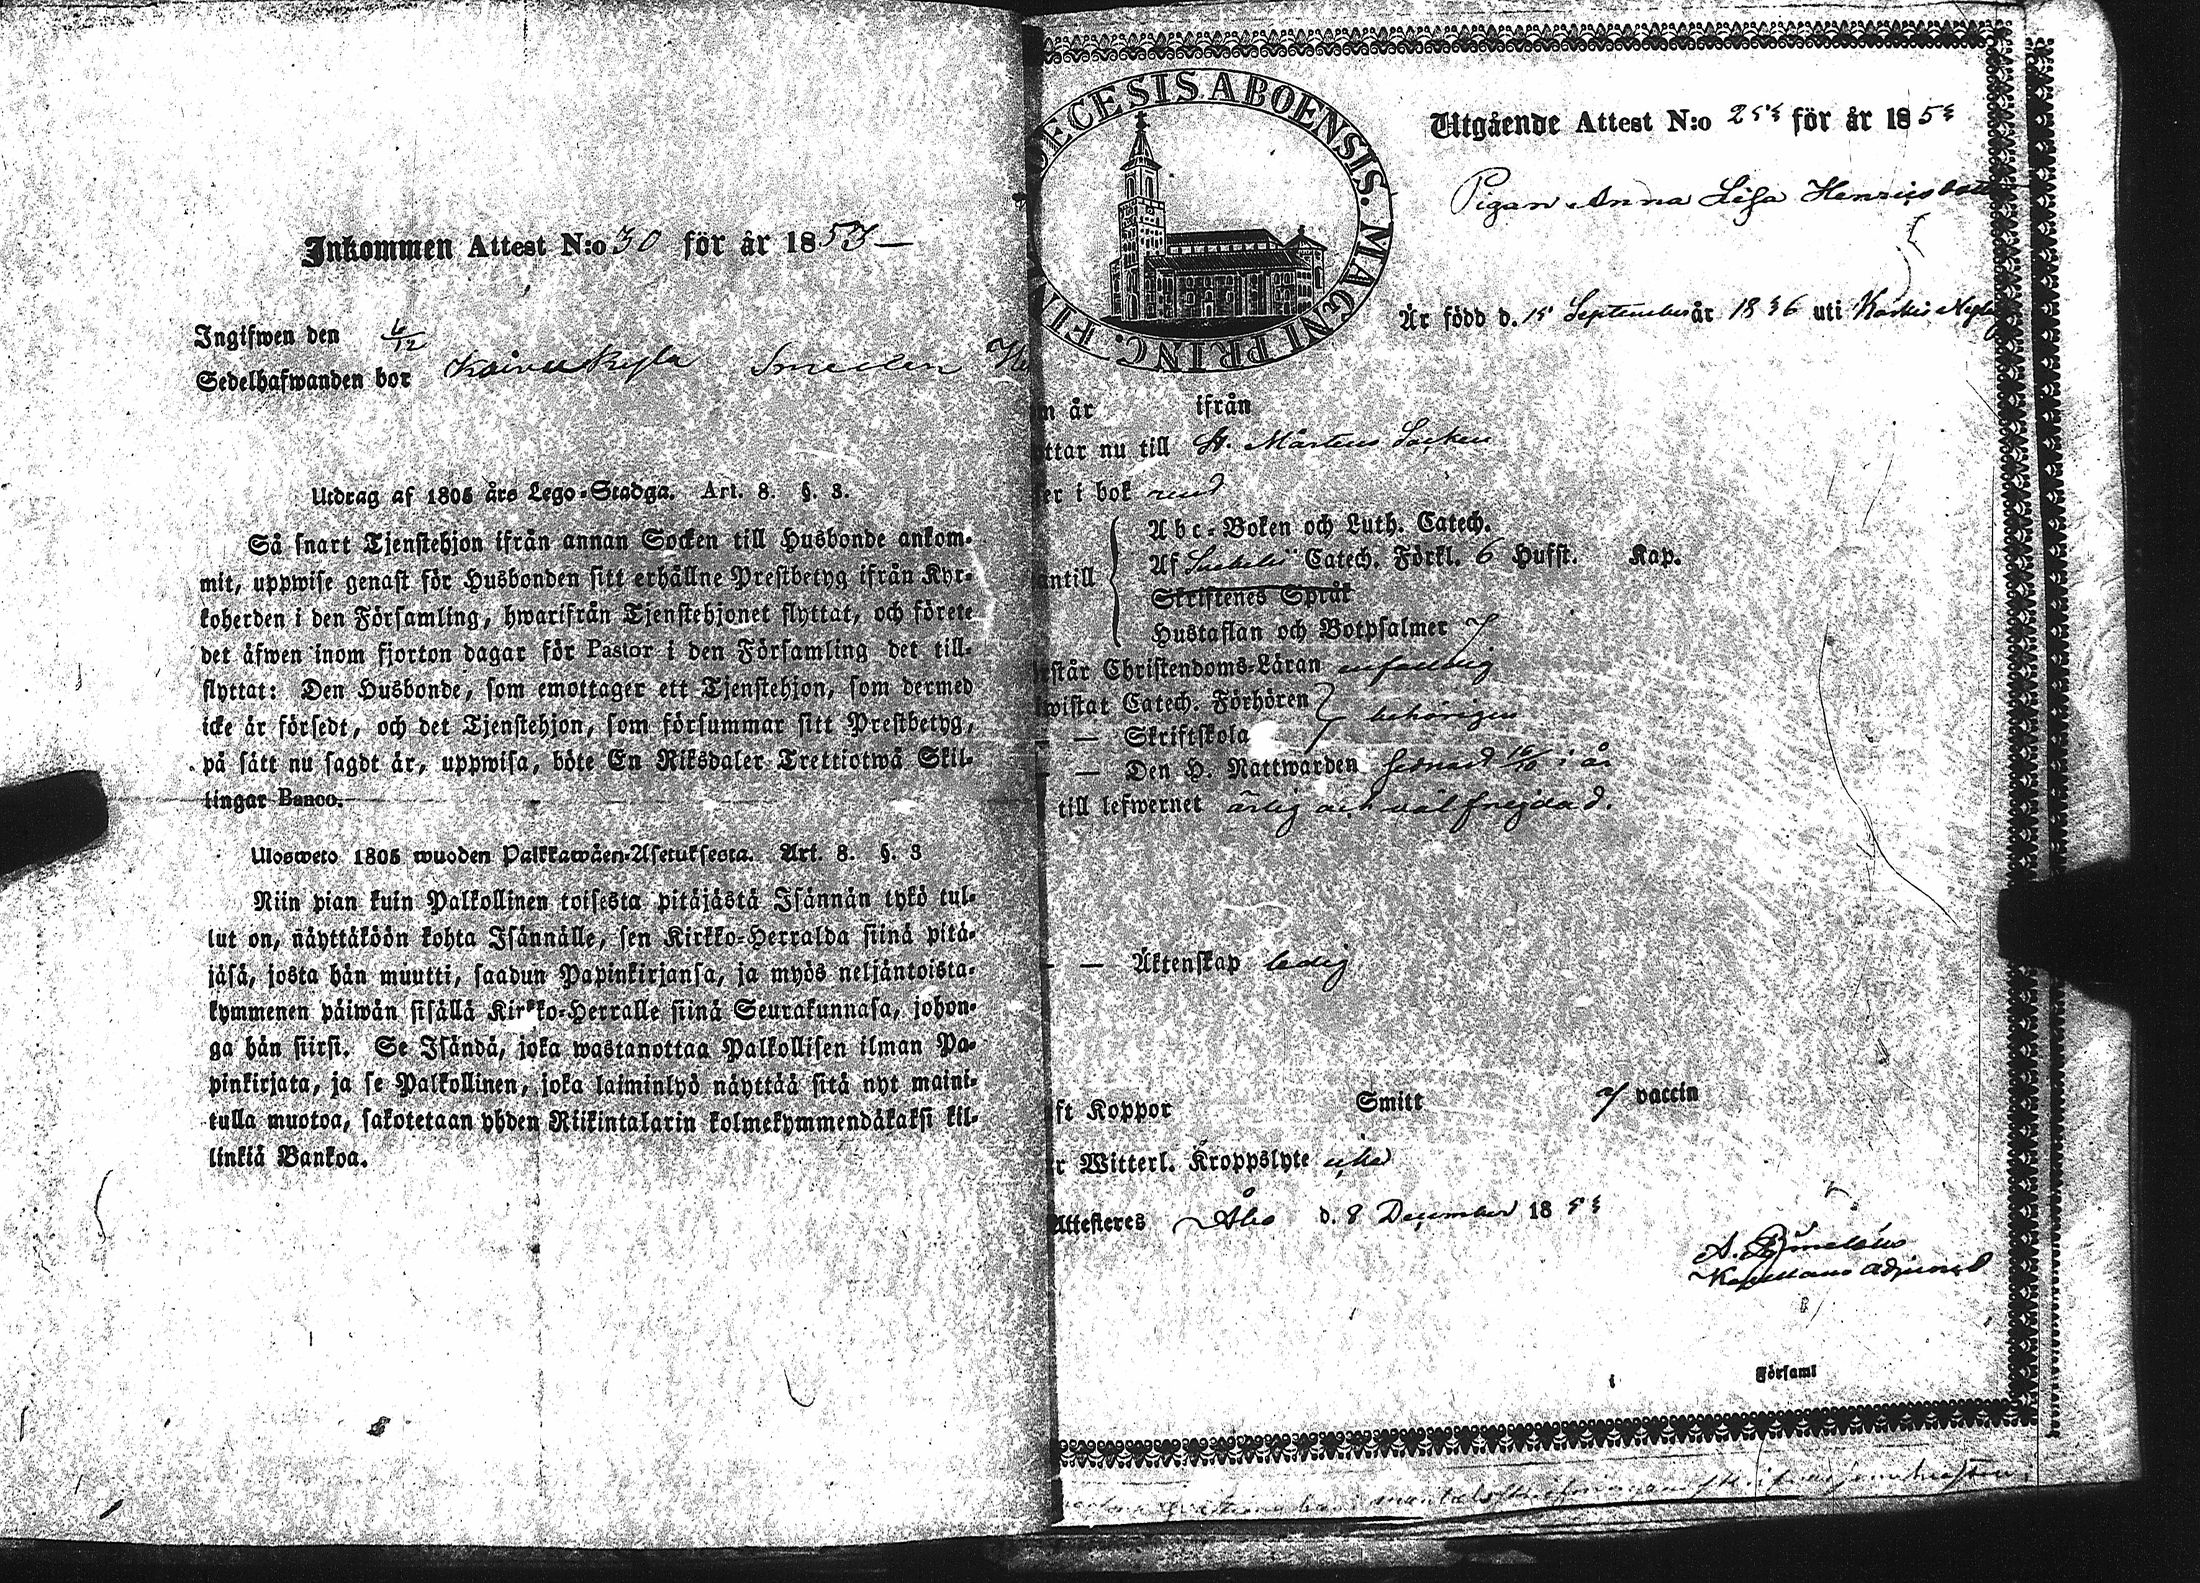 Inkommen Attest N:o 30 för år 1853 —
Ingifwen den 6/12
Sedelhafwanden bor Koivukylä Smeden
Utdrag af 1805 års Lego-Stadga. Art. 8. §. 3.
Så snart Tjenstehjon ifrån annan Socken till Husbonde ankom-
mit, uppwise genast för Husbonden sitt erhållne Prestbetyg ifrån Kyr-
koherden i den Församling, hwarifrån Tjenstehjonet flyttat, och förete
det äfwen inom fjorton dagar för Pastor i den Församling det till-
flyttat: Den Husbonde, som emottager ett Tjenstehjon, som dermed
icke är försedt, och det Tjenstehjon, som försummar sitt Prestbetyg,
på sätt nu sagdt är, uppwisa, böte En Riksdaler Trettiotwå Skil-
lingar Banco.
Ulosweto 1805 wuoden Palkkawäen-Asetuksesta. Art. 8. §. 3
Niin pian kuin Palkollinen toisesta pitäjästä Isännän tykö tul-
lut on, näyttäköön kohta Isännälle, sen Kirkko-Herralda siinä pitä-
jäsä, josta hän muutti, saadun Papinkirjansa, ja myös neljäntoista-
kymmenen päiwän sisällä Kirkko-Herralle siinä Seurakunnasa, johon-
ga hän siirsi. Se Isändä, joka wastanottaa Palkollisen ilman Pa-
pinkirjata, ja se Palkollinen, joka laiminlyö näyttää sitä nyt maini-
tulla muotoa, sakotetaan yhden Riikintalarin kolmekymmendäkaksi kil-
linkiä Bankoa.
ECESIS ABOENSIS. MAGNI PRINC. FIN
Utgående Attest N:o 253 för år 1853
Pigan Anna Lisa Henricsdotter
Är född d. 15 September år 1836 uti
n år ifrån
ttar nu till St. Mårtens Socken
er i bok rent
antill
Abc-Boken och Luth. Catech.
Af Catech. Förkl. 6 Hufst. Kap.
Skriftenes Språk
Hustaflan och Botpsalmer 7
rstår Christendoms-Läran enfaldig
wistat Catech. Förhören
behörigen
— — Skriftskola
— — Den H. Nattwarden sednast 16/10 i år
till lefwernet ärlig och väl frejdad.
— — Äktenskap ledig
ft Koppor Smitt af vaccin
r Witterl. Kroppslyte icke
Attesteres Åbo d. 8 December 1853
Kapellans Adjunct
i Församl